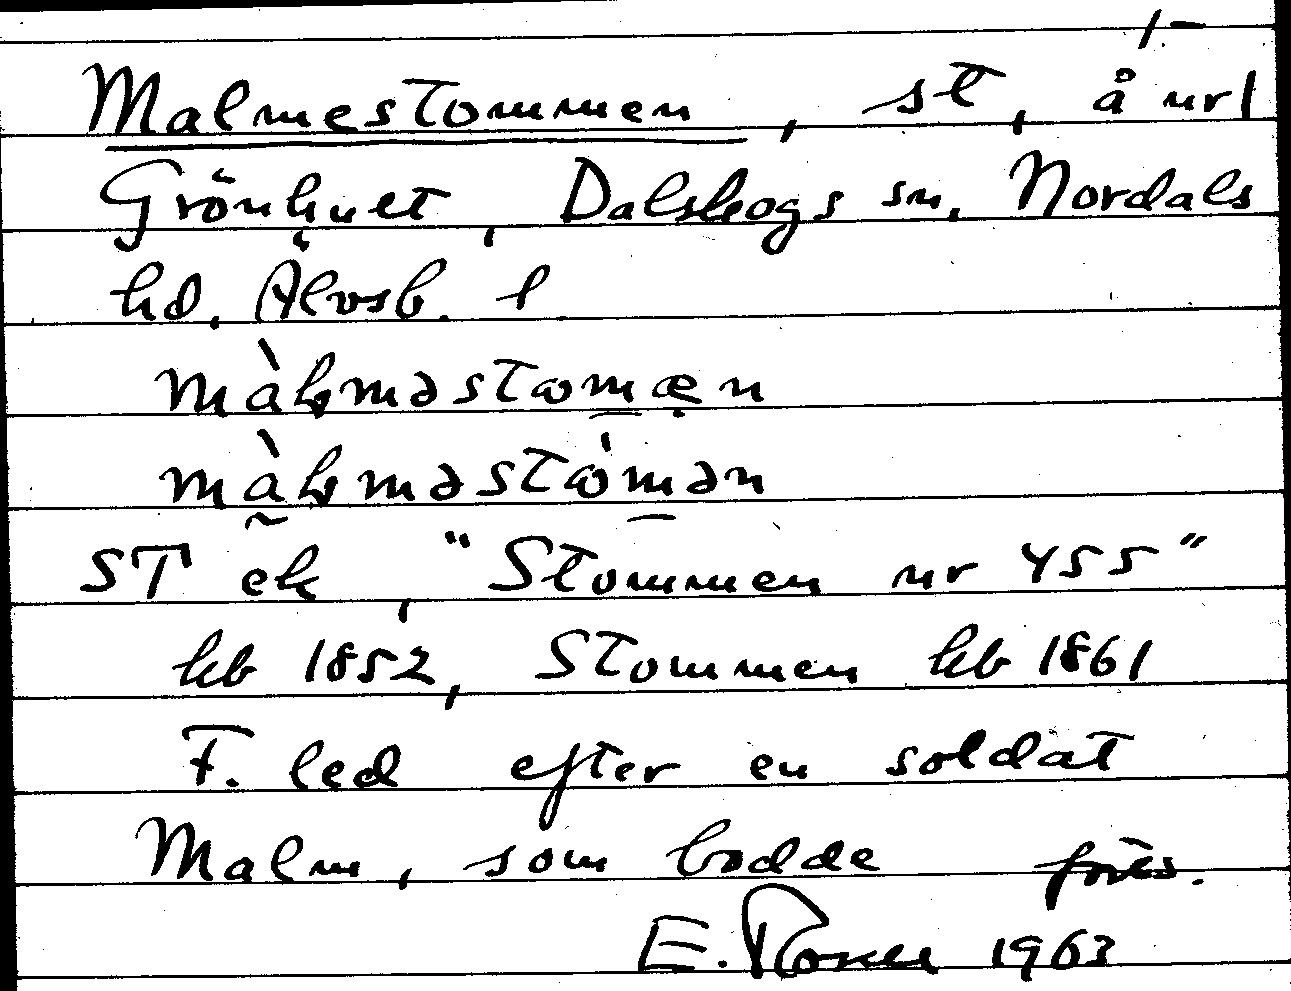 1-
Malmestommen, st, å nr 1
Grönhult, Dalskogs sn, Nordals
hd, Älvsb. l
màḷməstωmæn
màḷməstωmən
ST ek, "Stommen nr 455"
hb 1852, Stommen hb 1861
F. led efter en soldat
Malm, som bodde
E. Rosell 1963